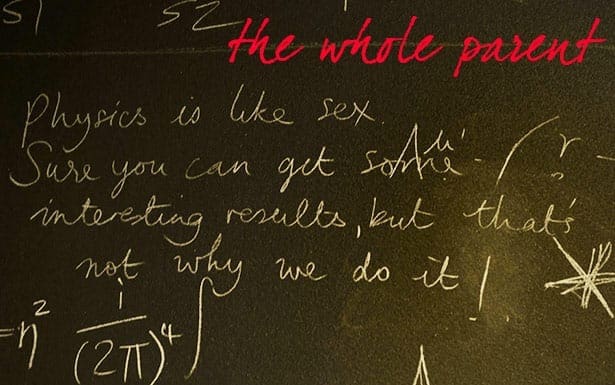 S1 S2
the whole parent
Physics is like sex.
Sure you can get some
interesting results, but that's
not why we do it!
=η² i/(2π)⁴ ∫